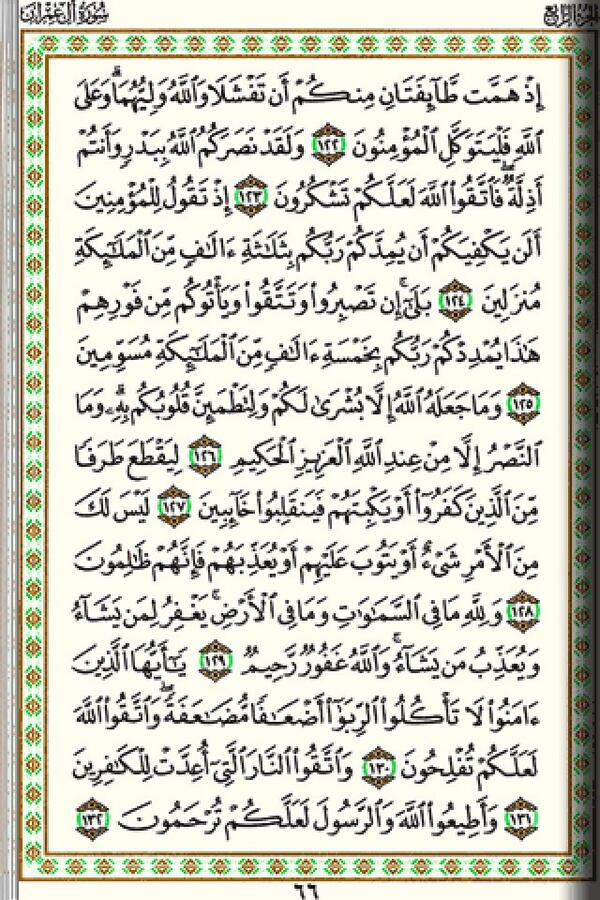 سُورَةُ آلِ عِمْرَانَ الجُزْءُ الرَّابِعُ
إِذْ هَمَّت طَّآئِفَتَانِ مِنكُمْ أَن تَفْشَلَا وَٱللَّهُ وَلِيُّهُمَاۗ وَعَلَى
ٱللَّهِ فَلْيَتَوَكَّلِ ٱلْمُؤْمِنُونَ ١٢٢ وَلَقَدْ نَصَرَكُمُ ٱللَّهُ بِبَدْرٍ وَأَنتُمْ
أَذِلَّةٌۖ فَٱتَّقُوا۟ ٱللَّهَ لَعَلَّكُمْ تَشْكُرُونَ ١٢٣ إِذْ تَقُولُ لِلْمُؤْمِنِينَ
أَلَن يَكْفِيَكُمْ أَن يُمِدَّكُمْ رَبُّكُم بِثَلَـٰثَةِ ءَالَـٰفٍ مِّنَ ٱلْمَلَـٰٓئِكَةِ
مُنزَلِينَ ١٢٤ بَلَىٰٓۚ إِن تَصْبِرُوا۟ وَتَتَّقُوا۟ وَيَأْتُوكُم مِّن فَوْرِهِمْ
هَـٰذَا يُمْدِدْكُمْ رَبُّكُم بِخَمْسَةِ ءَالَـٰفٍ مِّنَ ٱلْمَلَـٰٓئِكَةِ مُسَوِّمِينَ
١٢٥ وَمَا جَعَلَهُ ٱللَّهُ إِلَّا بُشْرَىٰ لَكُمْ وَلِتَطْمَئِنَّ قُلُوبُكُم بِهِۦۗ وَمَا
ٱلنَّصْرُ إِلَّا مِنْ عِندِ ٱللَّهِ ٱلْعَزِيزِ ٱلْحَكِيمِ ١٢٦ لِيَقْطَعَ طَرَفًا
مِّنَ ٱلَّذِينَ كَفَرُوٓا۟ أَوْ يَكْبِتَهُمْ فَيَنقَلِبُوا۟ خَآئِبِينَ ١٢٧ لَيْسَ لَكَ
مِنَ ٱلْأَمْرِ شَىْءٌ أَوْ يَتُوبَ عَلَيْهِمْ أَوْ يُعَذِّبَهُمْ فَإِنَّهُمْ ظَـٰلِمُونَ
١٢٨ وَلِلَّهِ مَا فِى ٱلسَّمَـٰوَٰتِ وَمَا فِى ٱلْأَرْضِۚ يَغْفِرُ لِمَن يَشَآءُ
وَيُعَذِّبُ مَن يَشَآءُۚ وَٱللَّهُ غَفُورٌ رَّحِيمٌ ١٢٩ يَـٰٓأَيُّهَا ٱلَّذِينَ
ءَامَنُوا۟ لَا تَأْكُلُوا۟ ٱلرِّبَوٰٓا۟ أَضْعَـٰفًا مُّضَـٰعَفَةًۖ وَٱتَّقُوا۟ ٱللَّهَ
لَعَلَّكُمْ تُفْلِحُونَ ١٣٠ وَٱتَّقُوا۟ ٱلنَّارَ ٱلَّتِىٓ أُعِدَّتْ لِلْكَـٰفِرِينَ
١٣١ وَأَطِيعُوا۟ ٱللَّهَ وَٱلرَّسُولَ لَعَلَّكُمْ تُرْحَمُونَ ١٣٢
٦٦